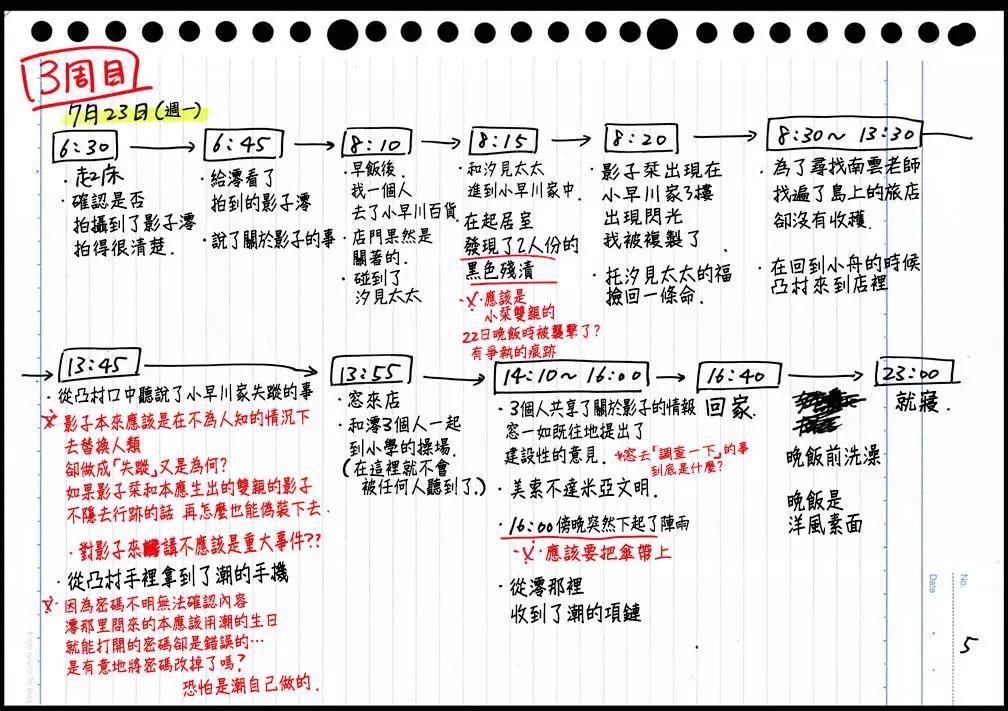 3周目
7月23日(週一)
6:30
・起床
・確認是否
拍攝到了影子澪
拍得很清楚.
6:45
・給澪看了
拍到的影子澪
・說了關於影子的事
8:10
・早飯後.
找一個人
去了小早川百貨
・店門果然是
關著的.
・碰到了
汐見太太
8:15
・和汐見太太
進到小早川家中.
在起居室
發現了2人份的
黑色殘漬
・※・應該是
小栞雙親的
22日晚飯時被襲擊了?
有爭執的痕跡
8:20
・影子栞出現在
小早川家3樓
出現閃光
我被複製了
・托汐見太太的福
撿回一條命.
8:30~13:30
・為了尋找南雲老師
找遍了島上的旅店
卻沒有收穫.
・在回到小舟的時候
凸村來到店裡
13:45
・從凸村口中聽說了小早川家失蹤的事
※影子本來應該是在不為人知的情況下
去替換人類
卻做成「失蹤」又是為何?
如果影子栞和本應生出的雙親的影子
不隱去行跡的話 再怎麼也能偽裝下去.
・對影子來講不應該是重大事件??
・從凸村手裡拿到了潮的手機
※・因為密碼不明無法確認內容
澪那里問來的本應該用潮的生日
就能打開的密碼卻是錯誤的…
是有意地將密碼改掉了嗎?
恐怕是潮自己做的.
13:55
・窓來店
・和澪3個人一起
到小學的操場.
(在這裡就不會
被任何人聽到了.)
14:10~16:00
・3個人共享了關於影子的情報
窓一如既往地提出了
建設性的意見.
窓去「調查一下」的事
到底是什麼?
・美索不達米亞文明.
・16:00傍晚突然下起了陣雨
-※・應該要把傘帶上
・從澪那裡
收到了潮的項鏈
16:40
回家.
晚飯前洗澡
晚飯是
洋風素面
23:00
就寢.
No.
Date
5